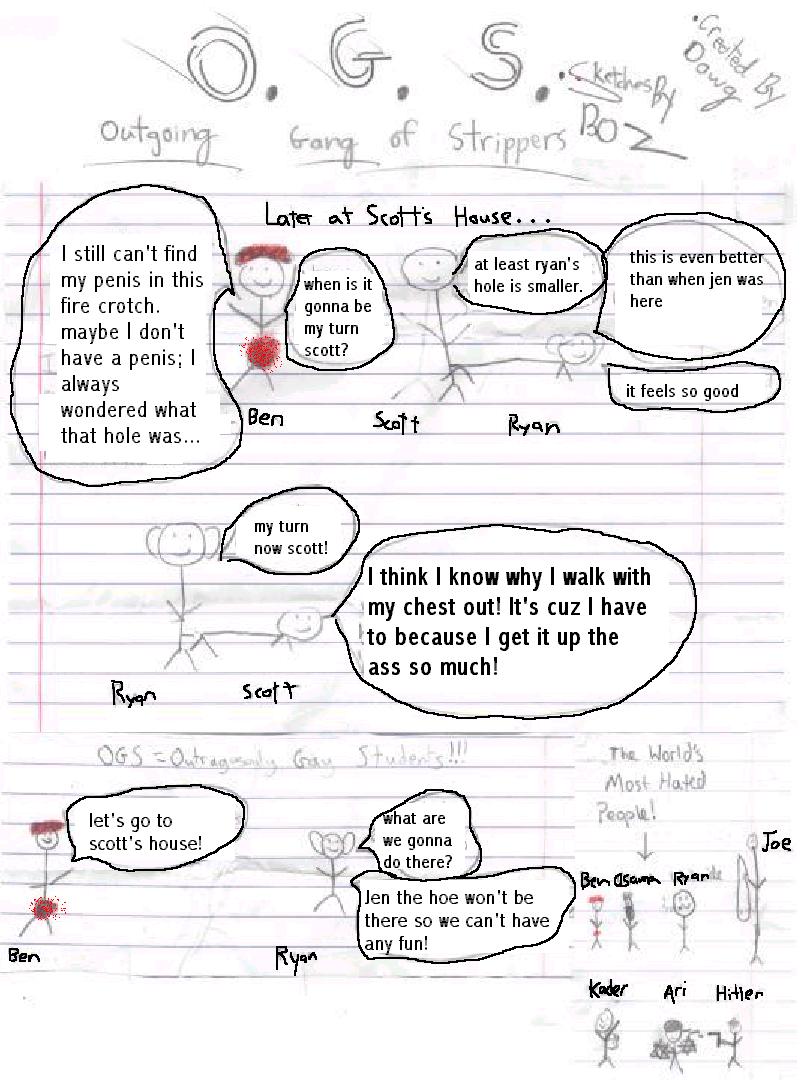 O. G. S.
Sketches By
BOZ
• Created By
Dawg
Outgoing Gang of Strippers
Later at Scott's House...
I still can't find
my penis in this
fire crotch.
maybe I don't
have a penis; I
always
wondered what
that hole was...
when is it
gonna be
my turn
scott?
at least ryan's
hole is smaller.
this is even better
than when jen was
here
it feels so good
Ben
Scott
Ryan
my turn
now scott!
I think I know why I walk with
my chest out! It's cuz I have
to because I get it up the
ass so much!
Ryan
Scott
OGS = Outragously Gay Students!!!
let's go to
scott's house!
what are
we gonna
do there?
Jen the hoe won't be
there so we can't have
any fun!
Ben
Ryan
The World's
Most Hated
People!
Ben Osama Ryan
Joe
Kader Ari Hitler